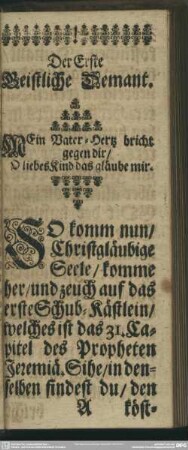 Der Erste
Geistliche Demant.
MEin Vater-Hertz bricht
gegen dir/
O liebes Kind das gläube mir.
SO komm nun/
Christgläubige
Seele/ komme
her/ und zeuch auf das
erste Schub-Kästlein/
welches ist das 31. Ca-
pitel des Propheten
Jeremiä. Sihe/ in den-
selben findest du/ den
A köst-